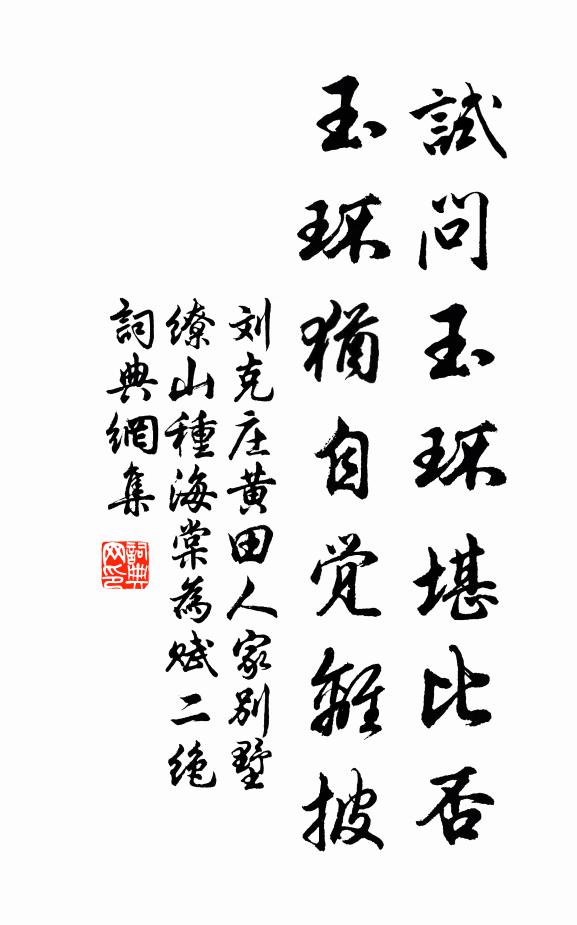 試問玉环堪比否
玉环猶自觉離披
刘克庄黄田人家别墅
缭山種海棠為赋二绝
詞典網集
詞典网印